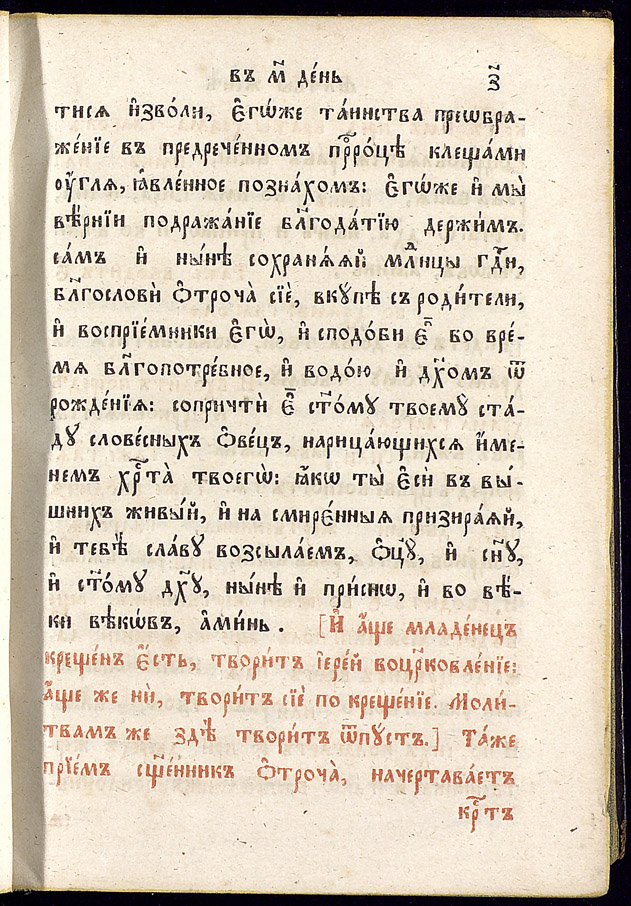 въ м҃ де́нь ѯ҃
тисѧ и҆зво́ли, є҆гѡ́же та́инства преѡбра-
же́нїе въ предрече́нномъ прⷪ҇ро́цѣ клеща́ми
ѹ҆́глѧ, ꙗ҆вле́нное позна́хомъ: є҆гѡ́же и҆ мы̀
вѣ́рнїи подража́нїе блг҃ода́тїю держи́мъ.
са́мъ и҆ ны́нѣ сохранѧ́ѧй млⷣнцы гдⷭ҇и,
блг҃ословѝ ѻ҆троча̀ сїѐ, вкꙋ́пѣ съ роди́тели,
и҆ воспрїе́мники є҆гѡ̀, и҆ сподо́би є҆̀ во вре́-
мѧ блг҃опотре́бное, и҆ водо́ю и҆ дх҃омъ ѿ
рожде́нїѧ: сопричтѝ є҆̀ ст҃о́мꙋ твоемꙋ̀ ста́-
дꙋ слове́сныхъ ѻ҆ве́цъ, нарица́ющихсѧ и҆́ме-
немъ хрⷭ҇та̀ твоегѡ̀: ꙗ҆́кѡ ты̀ є҆сѝ въ вы́-
шнихъ живы́й, и҆ на смире́нныѧ призира́ѧй,
и҆ тебѣ̀ сла́вꙋ возсыла́емъ, ѻ҆ц҃ꙋ̀, и҆ сн҃ꙋ,
и҆ ст҃о́мꙋ дх҃ꙋ, ны́нѣ и҆ при́снѡ, и҆ во вѣ́-
ки вѣкѡ́въ, а҆ми́нь. [И҆ а҆́ще младе́нецъ
креще́нъ є҆́сть, твори́тъ і҆ере́й воцр҃ковле́нїе:
а҆́ще же нѝ, твори́тъ сїѐ по креще́нїе. Моли́-
твамъ же здѣ̀ твори́тъ ѿпꙋ́стъ.] Та́же
прїе́мъ сщ҃е́нникъ ѻ҆троча̀, начертава́етъ
крⷭ҇тъ